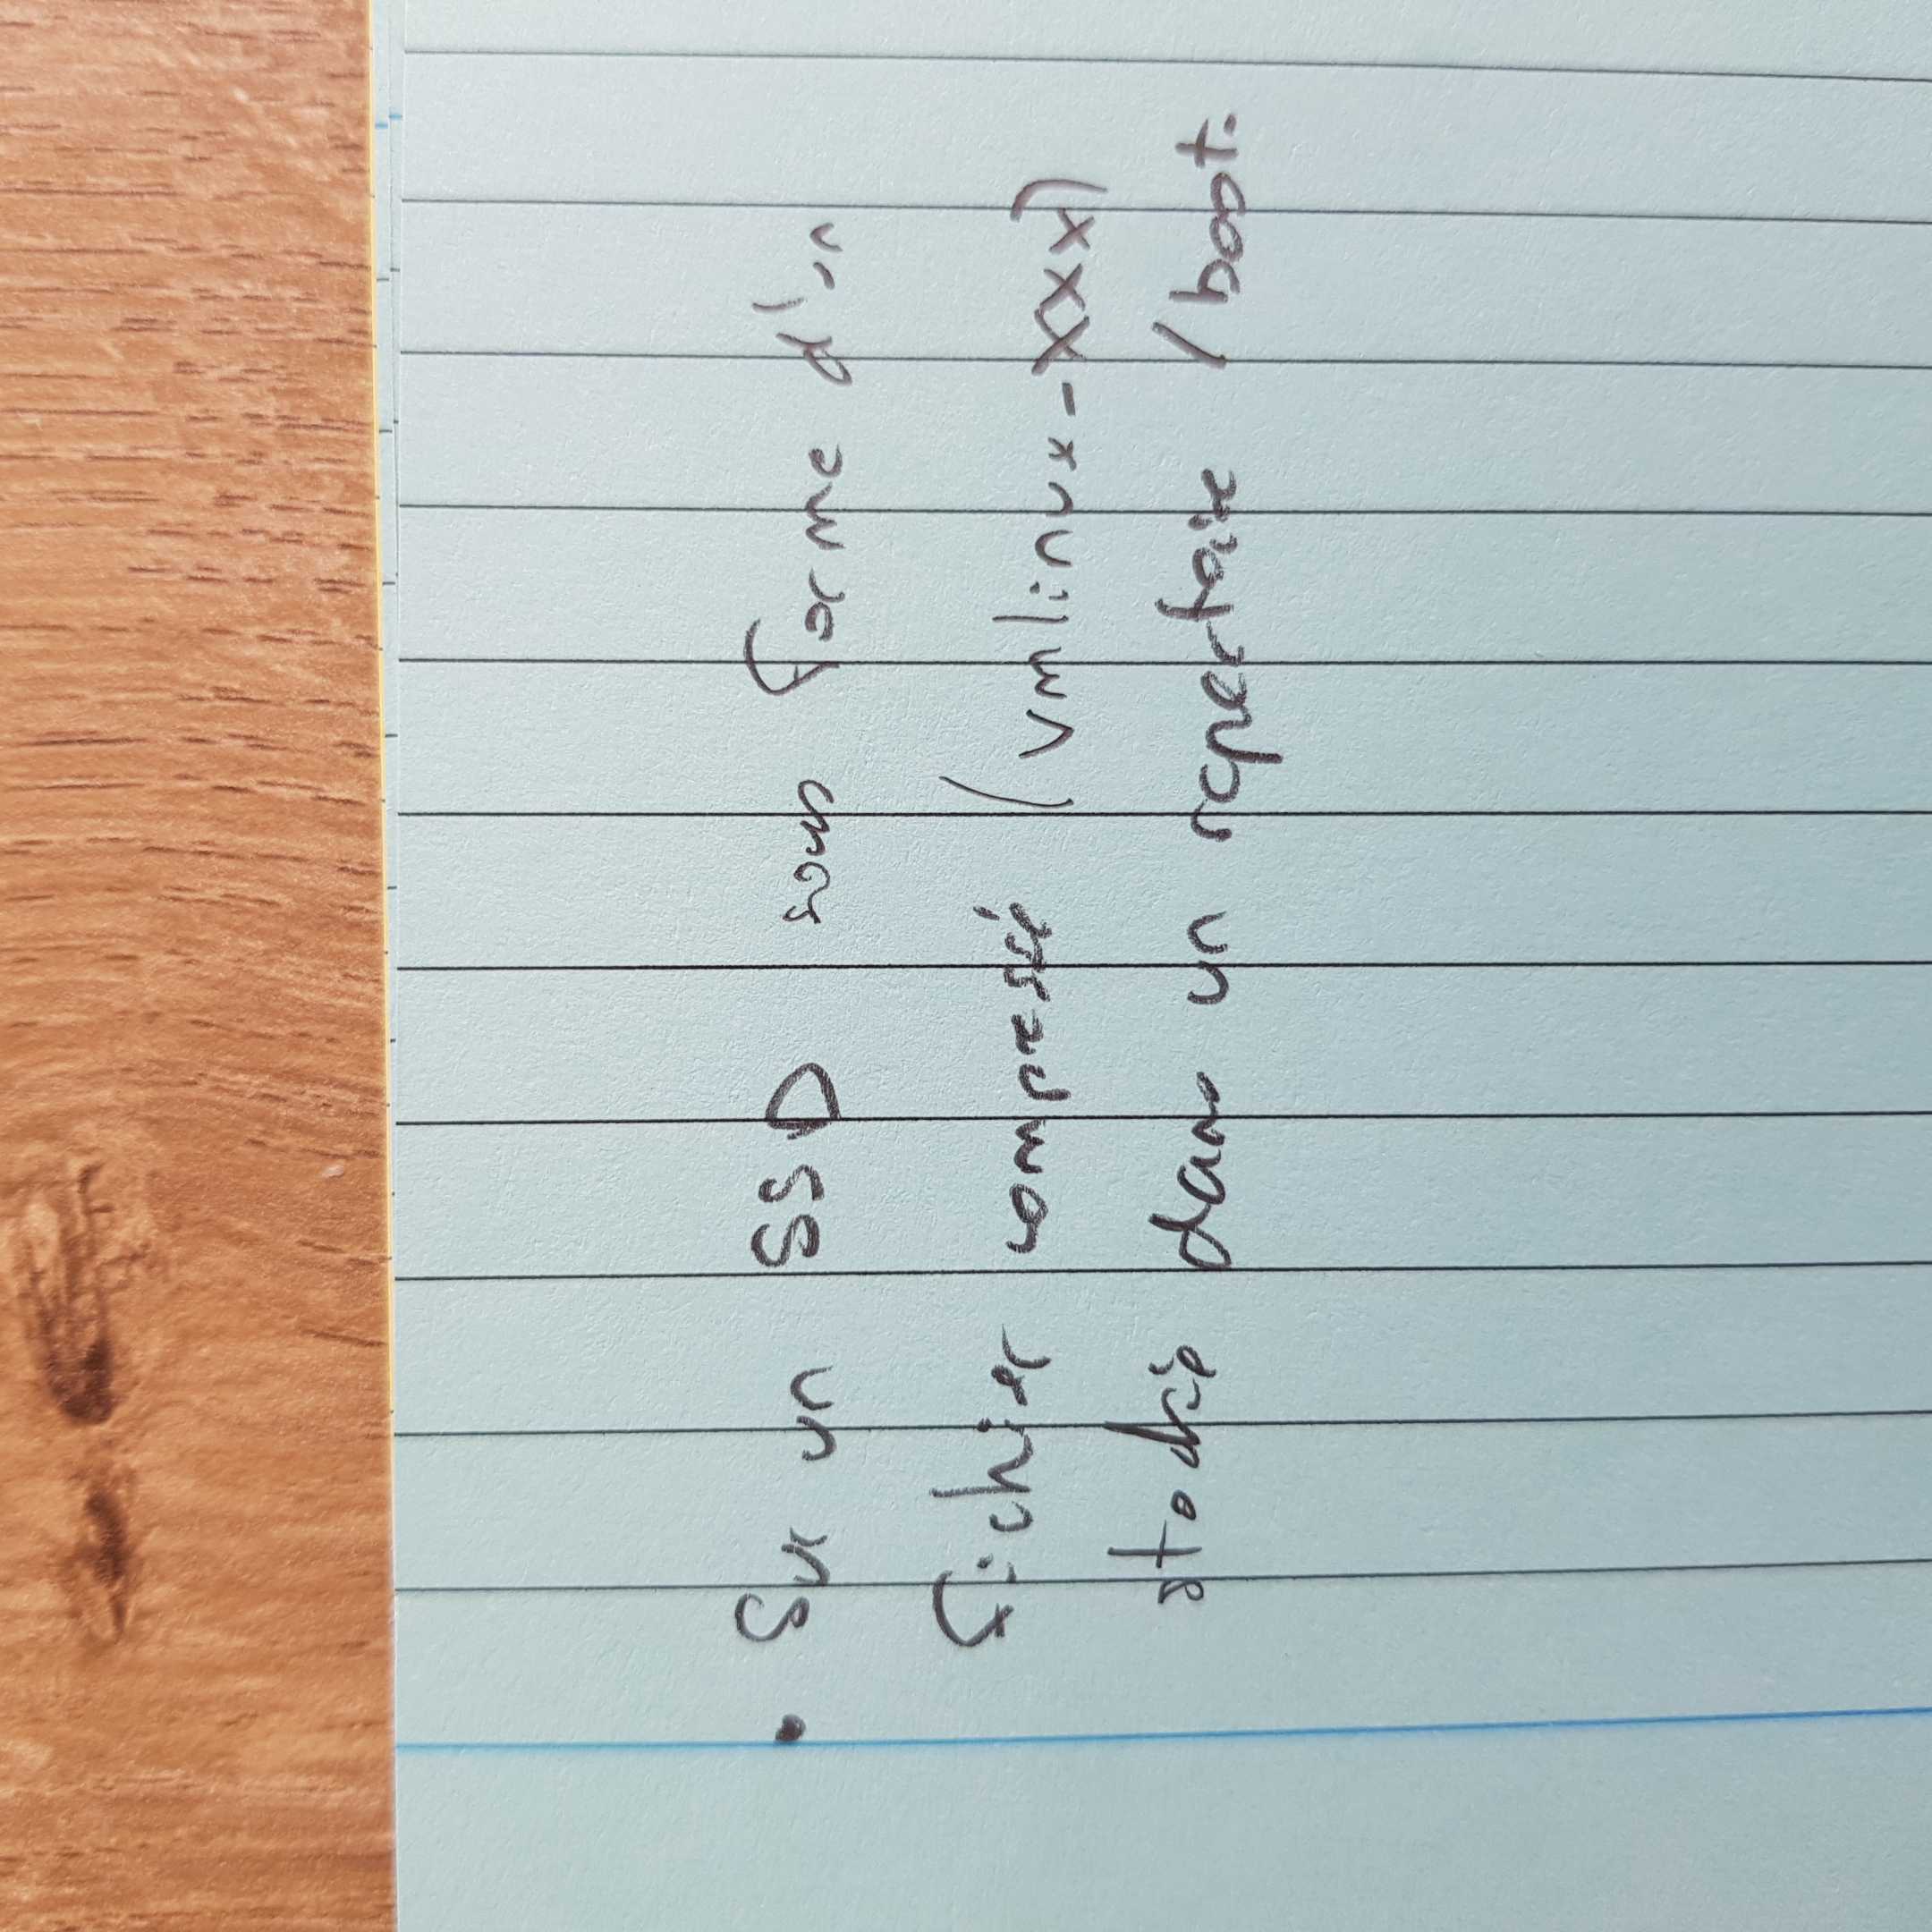 • Sur un SSD sous forme d'un
fichier compressé (vmlinux-xxx)
stockée dans un repertoire /boot.